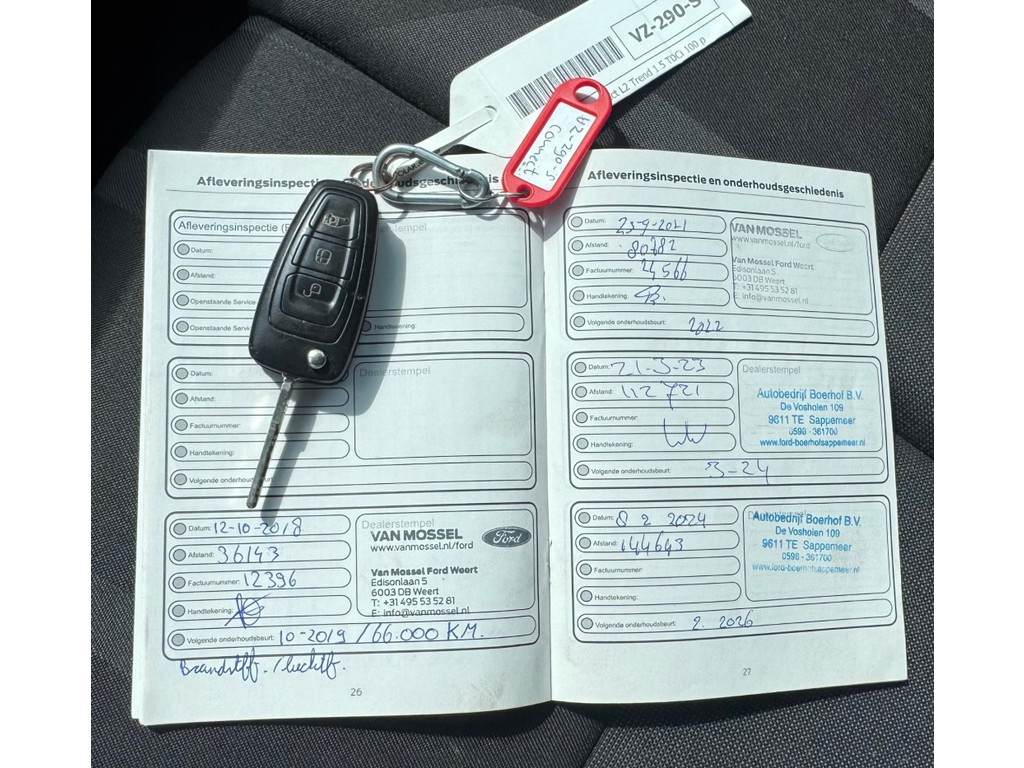 VZ-290-S
ct L2 Trend 1.5 TDCi 100 p
VZ-290-S
Connect
Afleveringsinspectie
Afleveringsinspectie
Datum:
Afstand:
Openstaande Service
Openstaande Servic
Handtekening:
Datum:
Afstand:
Factuurnummer:
Handtekening:
Volgende onderhoud
Dealerstempel
Datum: 12-10-2018
Afstand: 36143
Factuurnummer: 12396
Handtekening:
Volgende onderhoudsbeurt: 10-2019 / 66.000 KM.
Dealerstempel
VAN MOSSEL
www.vanmossel.nl/ford
Ford
Van Mossel Ford Weert
Edisonlaan 5
6003 DB Weert
T: +31 495 53 52 81
E: info@vanmossel.nl
26
Afleveringsinspectie en onderhoudsgeschiedenis
Datum: 23-9-2021
Afstand: 80782
Factuurnummer: 24566
Handtekening:
Volgende onderhoudsbeurt: 2022
VAN MOSSEL
www.vanmossel.nl/ford
Van Mossel Ford Weert
Edisonlaan 5
6003 DB Weert
T: +31 495 53 52 81
E: info@vanmossel.nl
Datum: 21-3-23
Afstand: 112721
Factuurnummer:
Handtekening:
Volgende onderhoudsbeurt: 3-24
Dealerstempel
Autobedrijf Boerhof B.V.
De Vosholen 109
9611 TE Sappemeer
0598 - 361700
www.ford-boerhofsappemeer.nl
Datum: 8 2 2024
Afstand: 144643
Factuurnummer:
Handtekening:
Volgende onderhoudsbeurt: 2. 2026
Autobedrijf Boerhof B.V.
De Vosholen 109
9611 TE Sappemeer
0598 - 361700
www.ford-boerhofsappemeer.nl
27